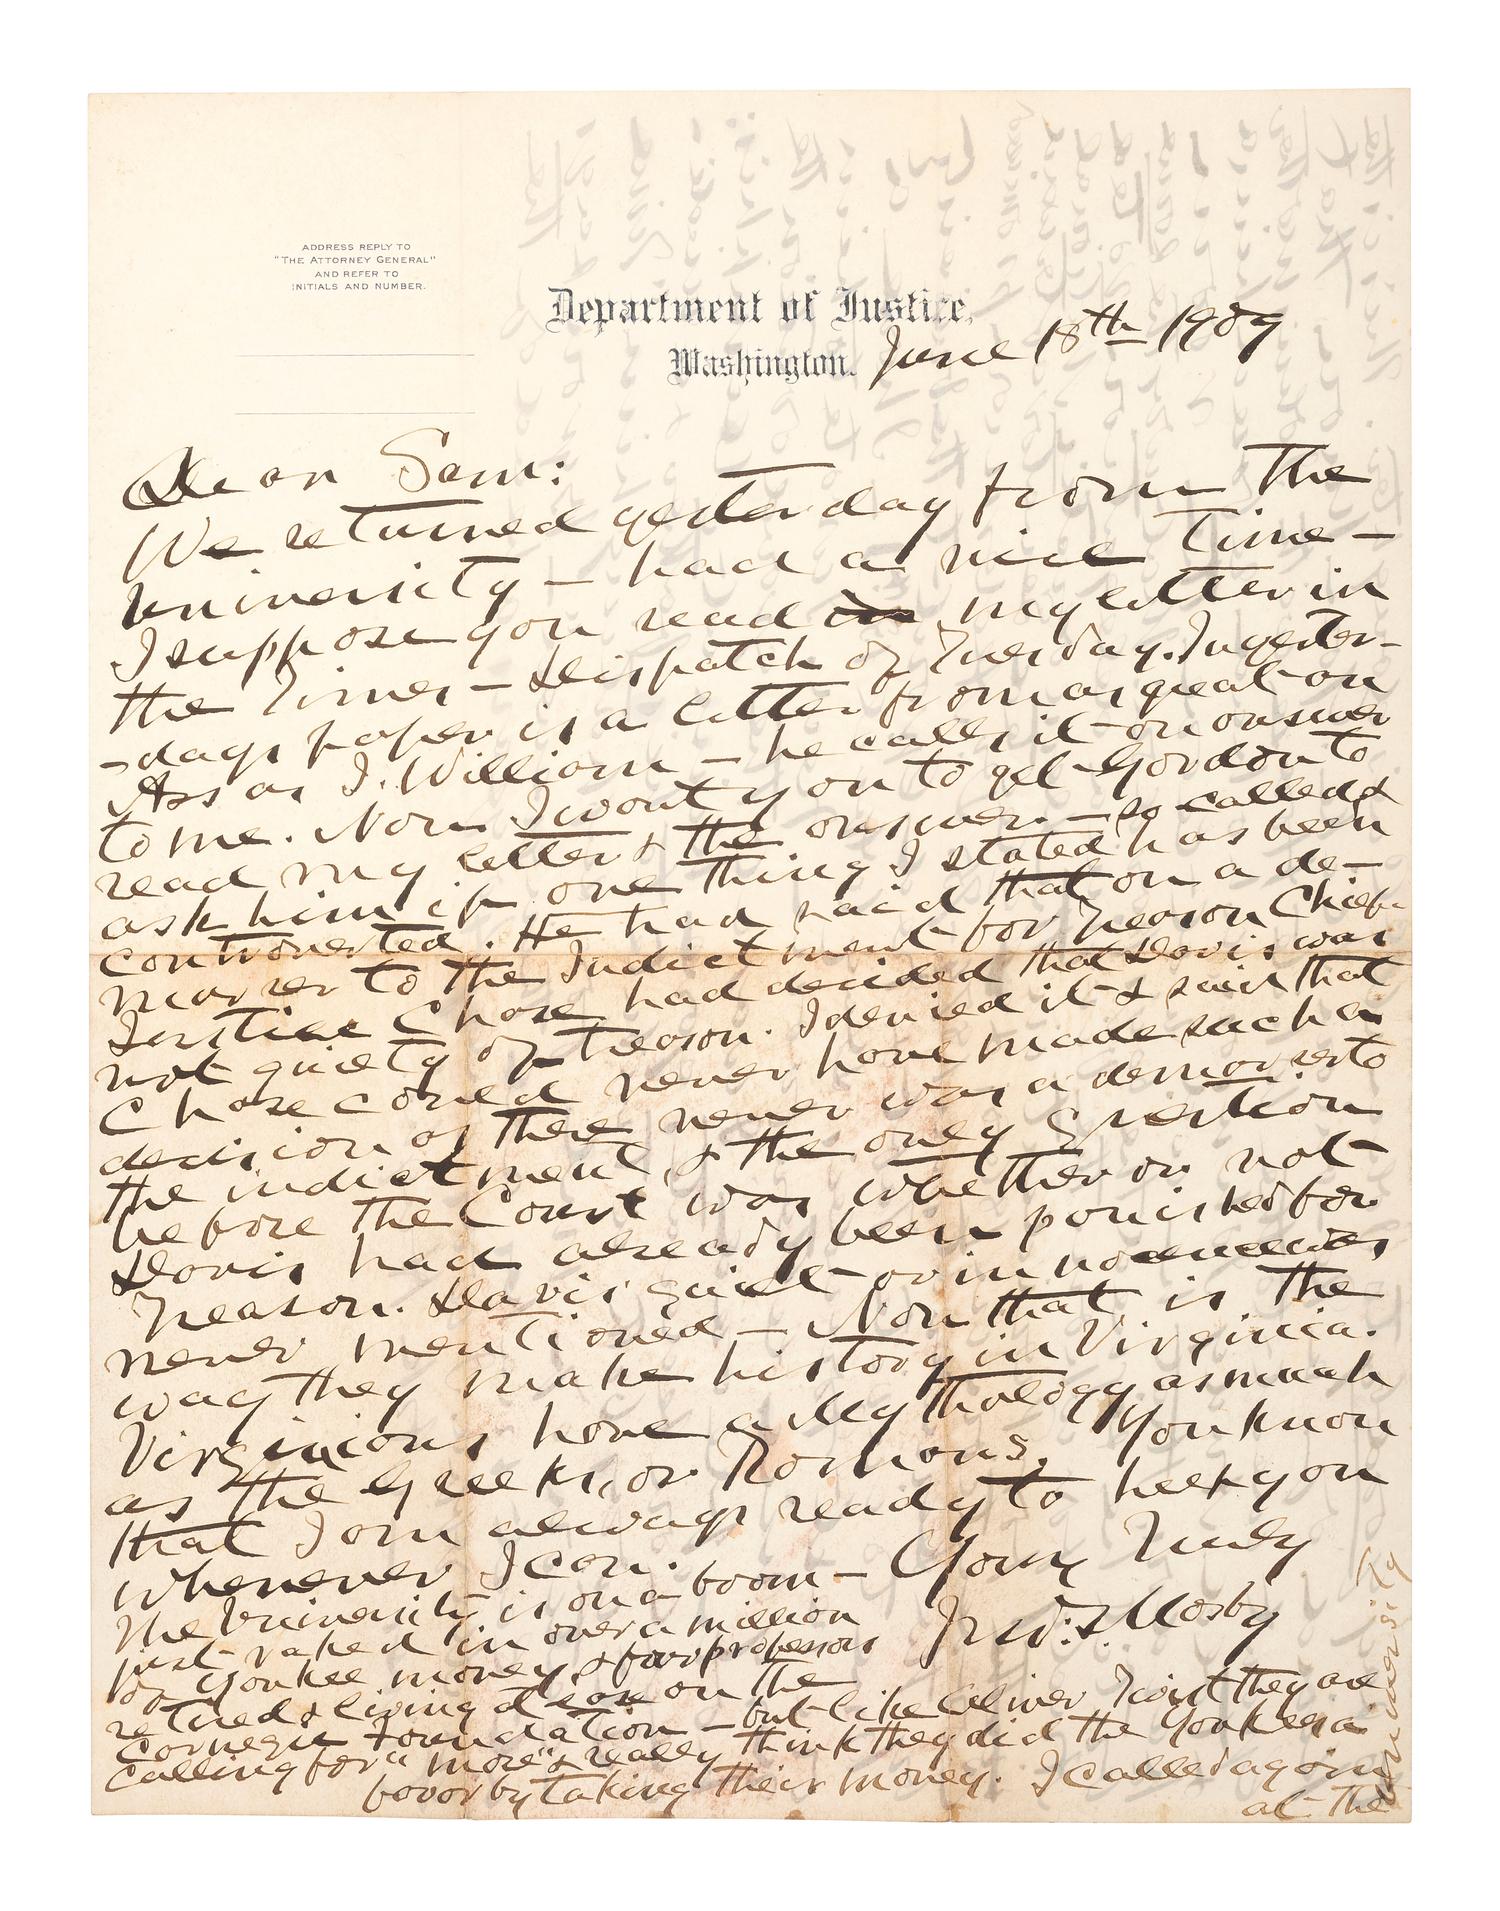 ADDRESS REPLY TO
"THE ATTORNEY GENERAL"
AND REFER TO
INITIALS AND NUMBER.
Department of Justice,
Washington. June 18th 1909
Dear Sam:
We returned yesterday from the
University – had a nice time –
I suppose you read in my letter in
the Times-Dispatch of Tuesday. In yester-
-days paper is a letter from as great an
Ass as J. William – he calls it an answer
to me. Now I want you to get Gordon to
read my letter & the answer – so called &
ask him if one thing I stated has been
controverted. He had said that on a de-
murrer to the Indictment for Treason Chief
Justice Chase had decided that Davis was
not guilty of treason. I denied it & said that
Chase could never have made such a
decision as there never was a demurrer to
the indictment, & the only Question
before the Court was whether or not
Davis had already been punished for
Treason. Davis' guilt or innocence was
never mentioned – Now that is the
way they make history in Virginia.
Virginians have a Mythology as much
as the Greeks, or Romans. You know
that I am always ready to help you
whenever I can.
Yours Truly
Jno. S. Mosby
The University is on a boom –
just raked in over a million
of Yankee money & four professors
retired & living at ease on the
Carnegie Foundation – but like Oliver Twist they are
calling for "more" & really think they did the Yankees a
favor by taking their money. I called again
at the
University